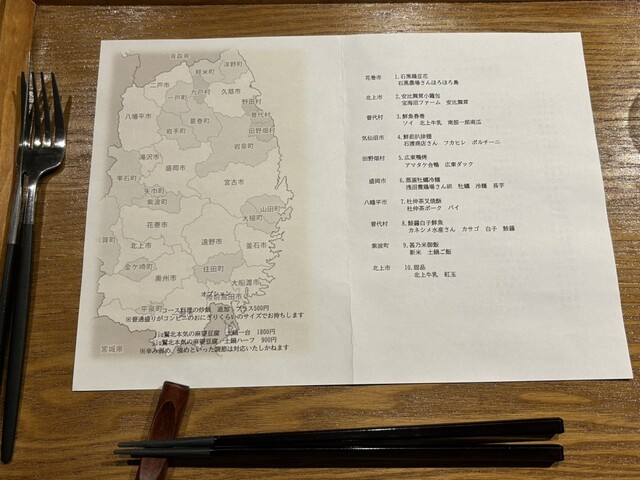 青森県
洋野町
軽米町
二戸市
九戸村
一戸町
久慈市
野田村
八幡平市
葛巻町
普代村
岩手町
田野畑村
岩泉町
滝沢市
盛岡市
宮古市
雫石町
矢巾町
紫波町
山田町
大槌町
花巻市
遠野市
釜石市
北上市
金ケ崎町
住田町
奥州市
大船渡市
平泉町
宮城県
コース料理の炒飯　追加　プラス500円
※普通盛りがコンビニのおにぎりくらいのサイズでお持ちします
北本気の麻婆豆腐　土鍋一台　1800円
北本気の麻婆豆腐　土鍋ハーフ　900円
※辛み弱め、強めといった調節は対応いたしかねます
花巻市　1.石黒鶏豆花
石黒農場さんほろほろ鳥
北上市　2.安比舞茸小籠包
宝海沼ファーム　安比舞茸
普代村　3.鮮魚春巻
ソイ　北上牛乳　南部一郎南瓜
気仙沼市　4.鮮菇扒排翅
石渡商店さん　フカヒレ　ポルチーニ
田野畑村　5.広東鴨烤
アマタケ合鴨　広東ダック
盛岡市　6.蒸蛋牡蠣冷麺
浅沼養鶏場さん卵　牡蠣　冷麺　長芋
八幡平市　7.杜仲茶叉焼酥
杜仲茶ポーク　パイ
普代村　8.鮟鱇白子鮮魚
カネシメ水産さん　カサゴ　白子　鮟鱇
紫波町　9.甚乃米御飯
新米　土鍋ご飯
北上市　10.甜品
北上牛乳　紅玉